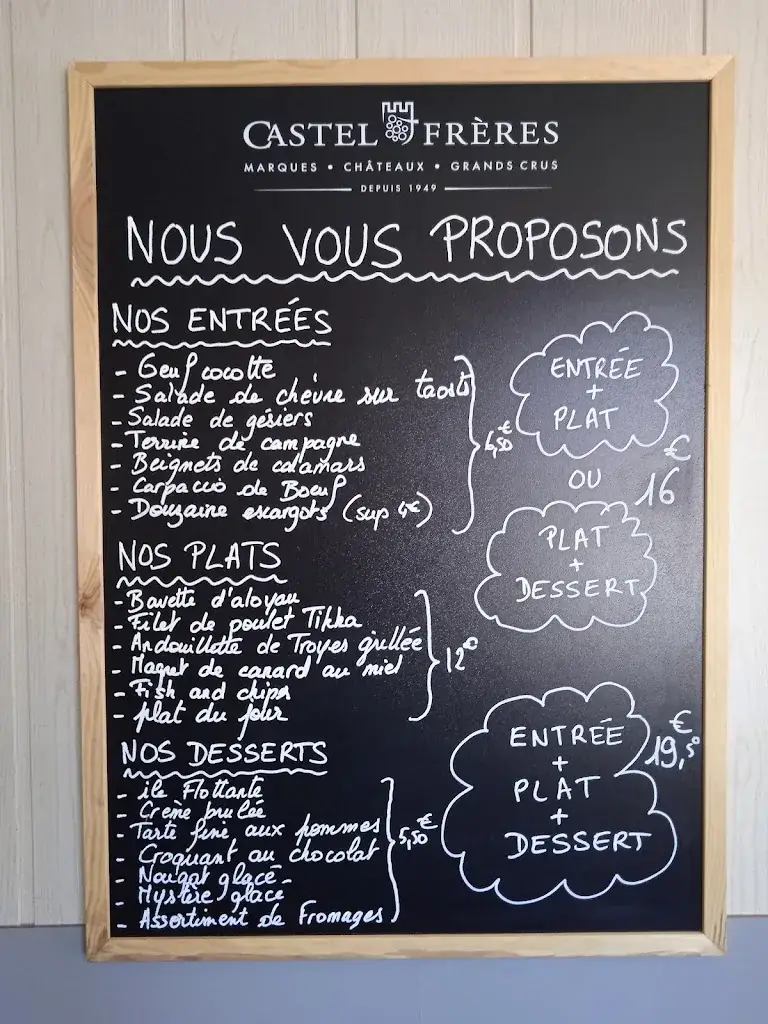 CASTEL FRÈRES
MARQUES • CHÂTEAUX • GRANDS CRUS
DEPUIS 1949
NOUS VOUS PROPOSONS
NOS ENTRÉES
- Oeuf cocotte
- Salade de chèvre sur taosts
- Salade de gésiers
- Terrine de campagne
- Beignets de calamars
- Carpaccio de Boeuf
- Douzaine escargots (sup 4€)
6,50€
NOS PLATS
- Bavette d'aloyau
- Filet de poulet Tikka
- Andouillette de Troyes grillée
- Magret de canard au miel
- Fish and chips
- plat du jour
12€
NOS DESSERTS
- île Flottante
- Crème brulée
- Tarte fine aux pommes
- Croquant au chocolat
- Nougat glacé
- Mystère glacé
- Assortiment de Fromages
5,50€
ENTRÉE
+
PLAT
OU
16€
PLAT
+
DESSERT
ENTRÉE
+
PLAT
+
DESSERT
19,50€